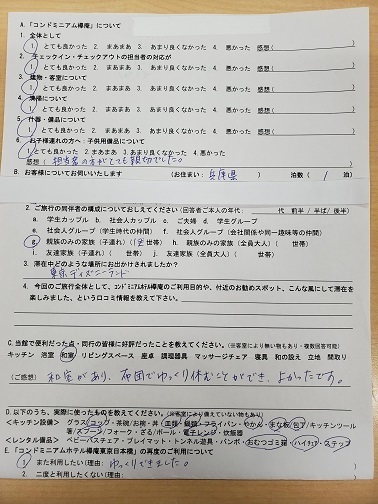 A.「コンドミニアム欅庵」について
1. 全体として
1. とても良かった 2. まあまあ 3. あまり良くなかった 4. 悪かった 感想（ ）
2. チェックイン・チェックアウトの担当者の対応が
1. とても良かった 2. まあまあ 3. あまり良くなかった 4. 悪かった 感想（ ）
3. 建物・客室について
1. とても良かった 2. まあまあ 3. あまり良くなかった 4. 悪かった 感想（ ）
4. 清掃について
1. とても良かった 2. まあまあ 3. あまり良くなかった 4. 悪かった 感想（ ）
5. 什器・備品について
1. とても良かった 2. まあまあ 3. あまり良くなかった 4. 悪かった 感想（ ）
6. お子様連れの方へ・子供用備品について
1. とても良かった 2. まあまあ 3. あまり良くなかった 4. 悪かった
感想（ 担当者の方がとっても親切でした。 ）
B. お客様についてお伺いいたします （お住まい： 兵庫県 ） 泊数（ 1 泊）
2. ご旅行の同伴者の構成についておしえてください（回答者ご本人の年年： 代 前半 / 半ば / 後半）
a. 学生カップル b. 社会人カップル c. ご夫婦 d. 学生グループ
e. 社会人グループ（学生時代の仲間） f. 社会人グループ（会社関係や同一趣味等の仲間）
g. 親族のみの家族（子連れ）（ 世帯） h. 親族のみの家族（全員大人）（ 世帯）
i. 友達家族（子連れ）（ 世帯） j. 友達家族（全員大人）（ 世帯）
3. 滞在中どのような場所にお出かけされましたか？
東京ディズニーランド
4. 今回のご旅行全体として、コンドミニアムホテル欅庵のご利用目的や、付近のお勧めスポット、こんな風にして滞在を
楽しみました、という口コミ情報を教えて下さい。
C. 当館で便利だった点・同行の皆様に好評だったことを教えてください。（※客室により無い物もあり・複数回答可能）
キッチン 浴室 和室 リビングスペース 座卓 調理器具 マッサージチェア 寝具 和の設え 立地 間取り
（ご感想） 和室があり、布団でゆっくり休むことができ、よかったです。
D. 以下のうち、実際に使ったものを教えてください。（※客室により備えていない物もあり）
＜キッチン設備＞ グラス/コップ・茶碗/お椀・丼 皿類・鍋類・フライパン・やかん・まな板・包丁/キッチンツール
箸/スプーン/フォーク・ざる/ボール・電子レンジ・炊飯器
＜レンタル備品＞ ベビーバスチェア・プレイマット・トンネル遊具・バンボ・おむつゴミ箱・ハイチェア・ステップ
E.「コンドミニアムホテル欅庵東京日本橋」の再度のご利用について
1. また利用したい（理由： ゆっくりできました。
2. 二度と利用したくない（理由：